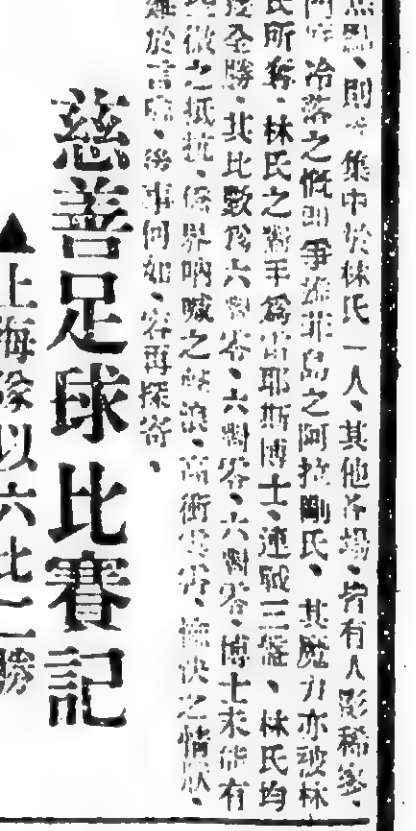 焦點、則集中於林氏一人、其他各場、皆有人影稀寥、
冷落之慨、即爭雄菲島之阿拉剛氏、其魔力亦被林
氏所奪、林氏之對手為雷耶斯博士、連戰三盤、林氏均
獲全勝、其比數爲六對零、六對零、六對零、博士未能有
些微之抵抗、僑界吶喊之聲浪、高衝雲霄、愉快之情狀、
難於言喻、後事何如、容再探寄。
慈善足球比賽記
▲上海隊以六比二勝